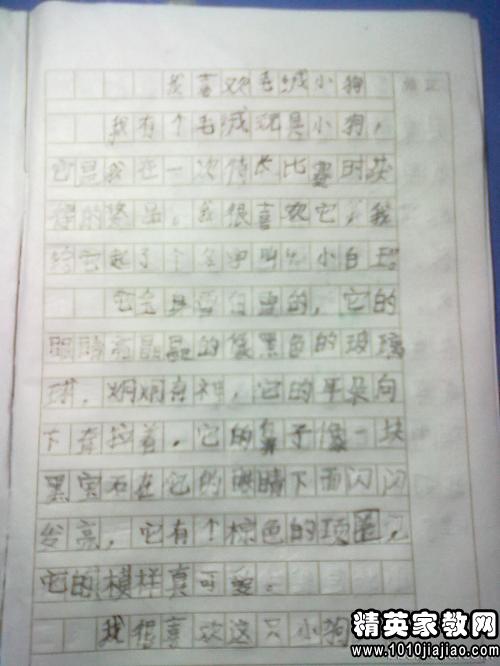 我喜欢毛绒小狗
我有个毛绒玩具小狗，
它是我在一次特长比赛时获
得的奖品，我很喜欢它，我
给它起了个名字叫小白
它全身雪白雪白的，它的
眼睛亮晶晶的像黑色的玻璃
球，炯炯有神，它的耳朵向
下耷拉着，它的鼻子像一块
黑宝石在它的眼睛下面闪闪
发亮，它有个棕色的项圈，
它的模样真可爱。
我很喜欢这只小狗
精英家教网
www.1010jiajiao.com